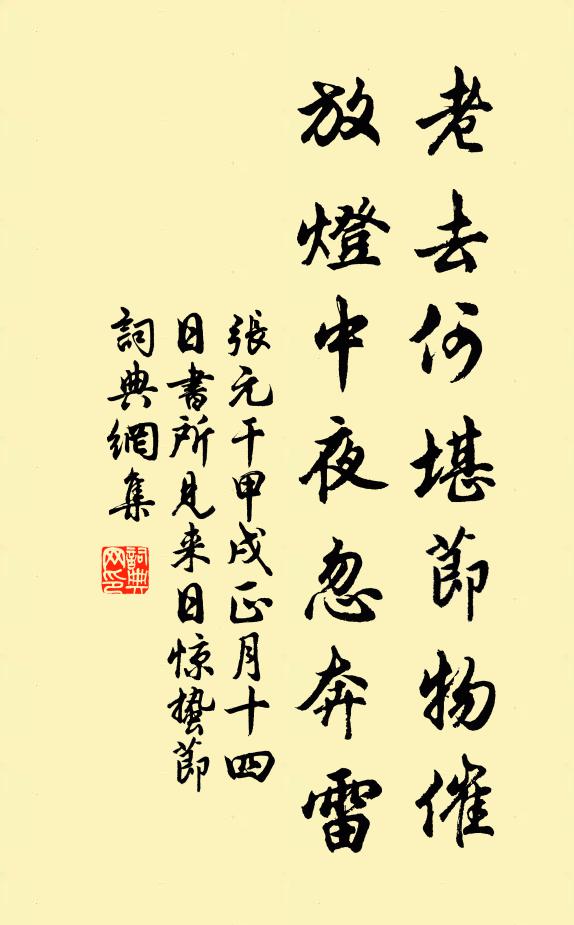 老去何堪節物催
放燈中夜忽奔雷
張元干甲戌正月十四
日書所見来日惊蟄節
詞典網集
詞典
网印